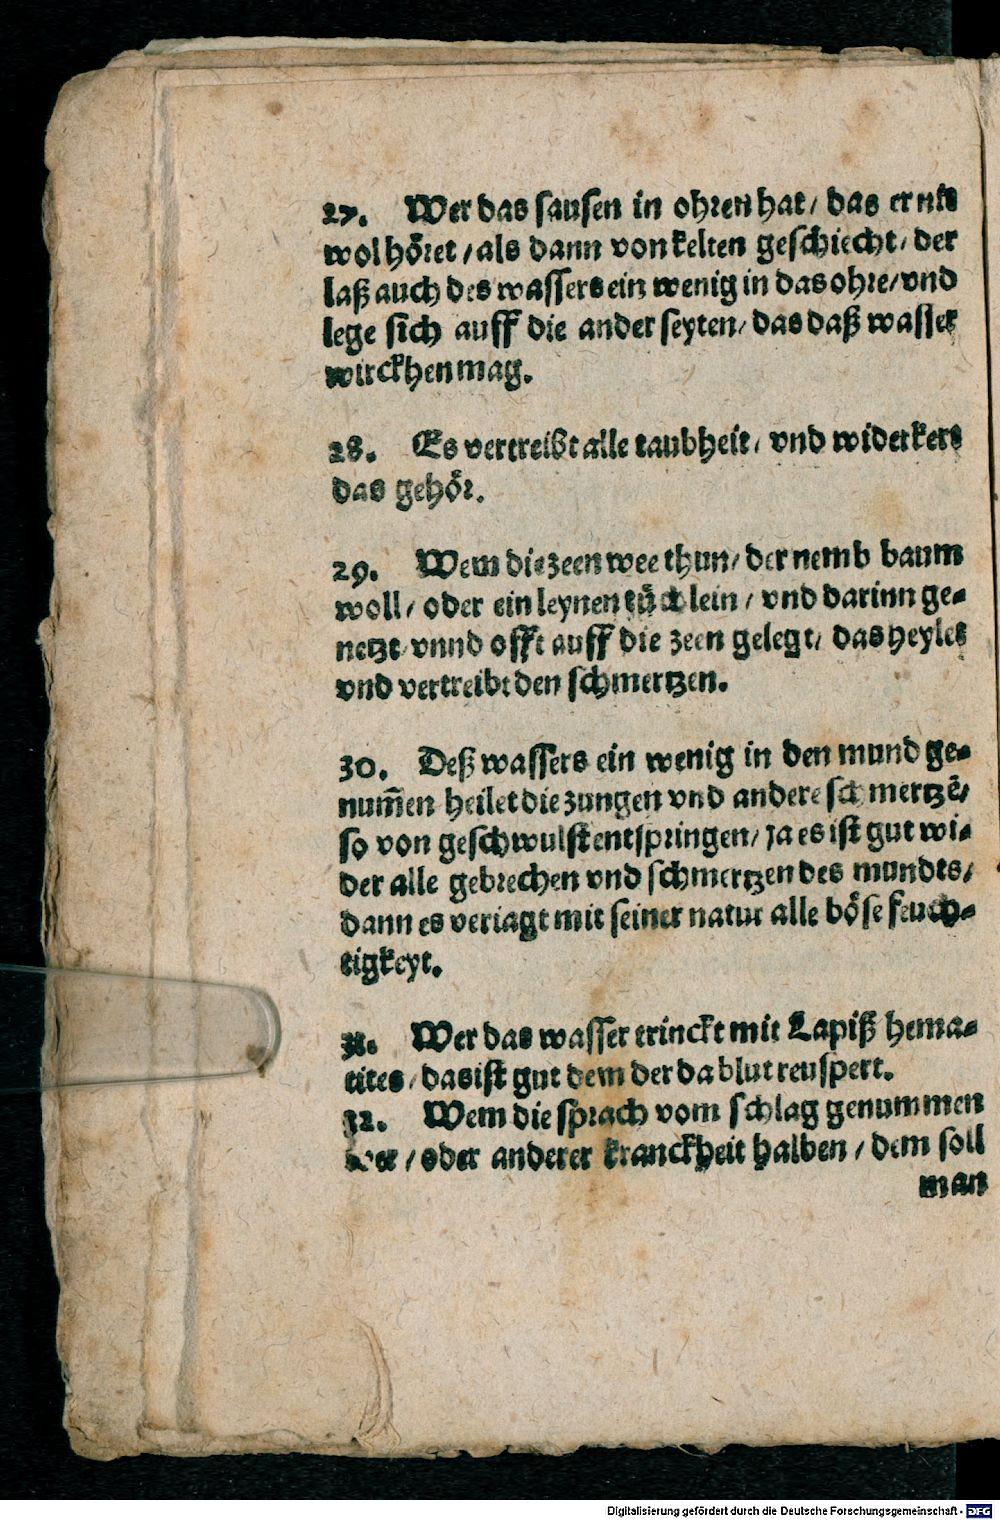 27. Wer das sausen in ohren hat/ das er nit
wol höret/ als dann von kelten geschiecht/ der
laß auch des wassers ein wenig in das ohre/ vnd
lege sich auff die ander seyten/ das daß wasser
wirckhen mag.
28. Es vertreibt alle taubheit/ vnd widerkert
das gehör.
29. Wem die zeen wee thun/ der nemb baum
woll/ oder ein leynen tüchlein/ vnd darinn ge⸗
netzt/ vnnd offt auff die zeen gelegt/ das heylet
vnd vertreibt den schmertzen.
30. Deß wassers ein wenig in den mund ge⸗
num̄en heilet die zungen vnd andere schmertzē/
so von geschwulst entspringen/ ja es ist gut wi⸗
der alle gebrechen vnd schmertzen des mundts/
dann es veriagt mit seiner natur alle böse feuch⸗
tigkeyt.
31. Wer das wasser trinckt mit Lapiß hema⸗
tites/ das ist gut dem der da blut reuspert.
32. Wem die sprach vom schlag genummen
wer/ oder anderer kranckheit halben/ dem soll
man
Digitalisierung gefördert durch die Deutsche Forschungsgemeinschaft - DFG